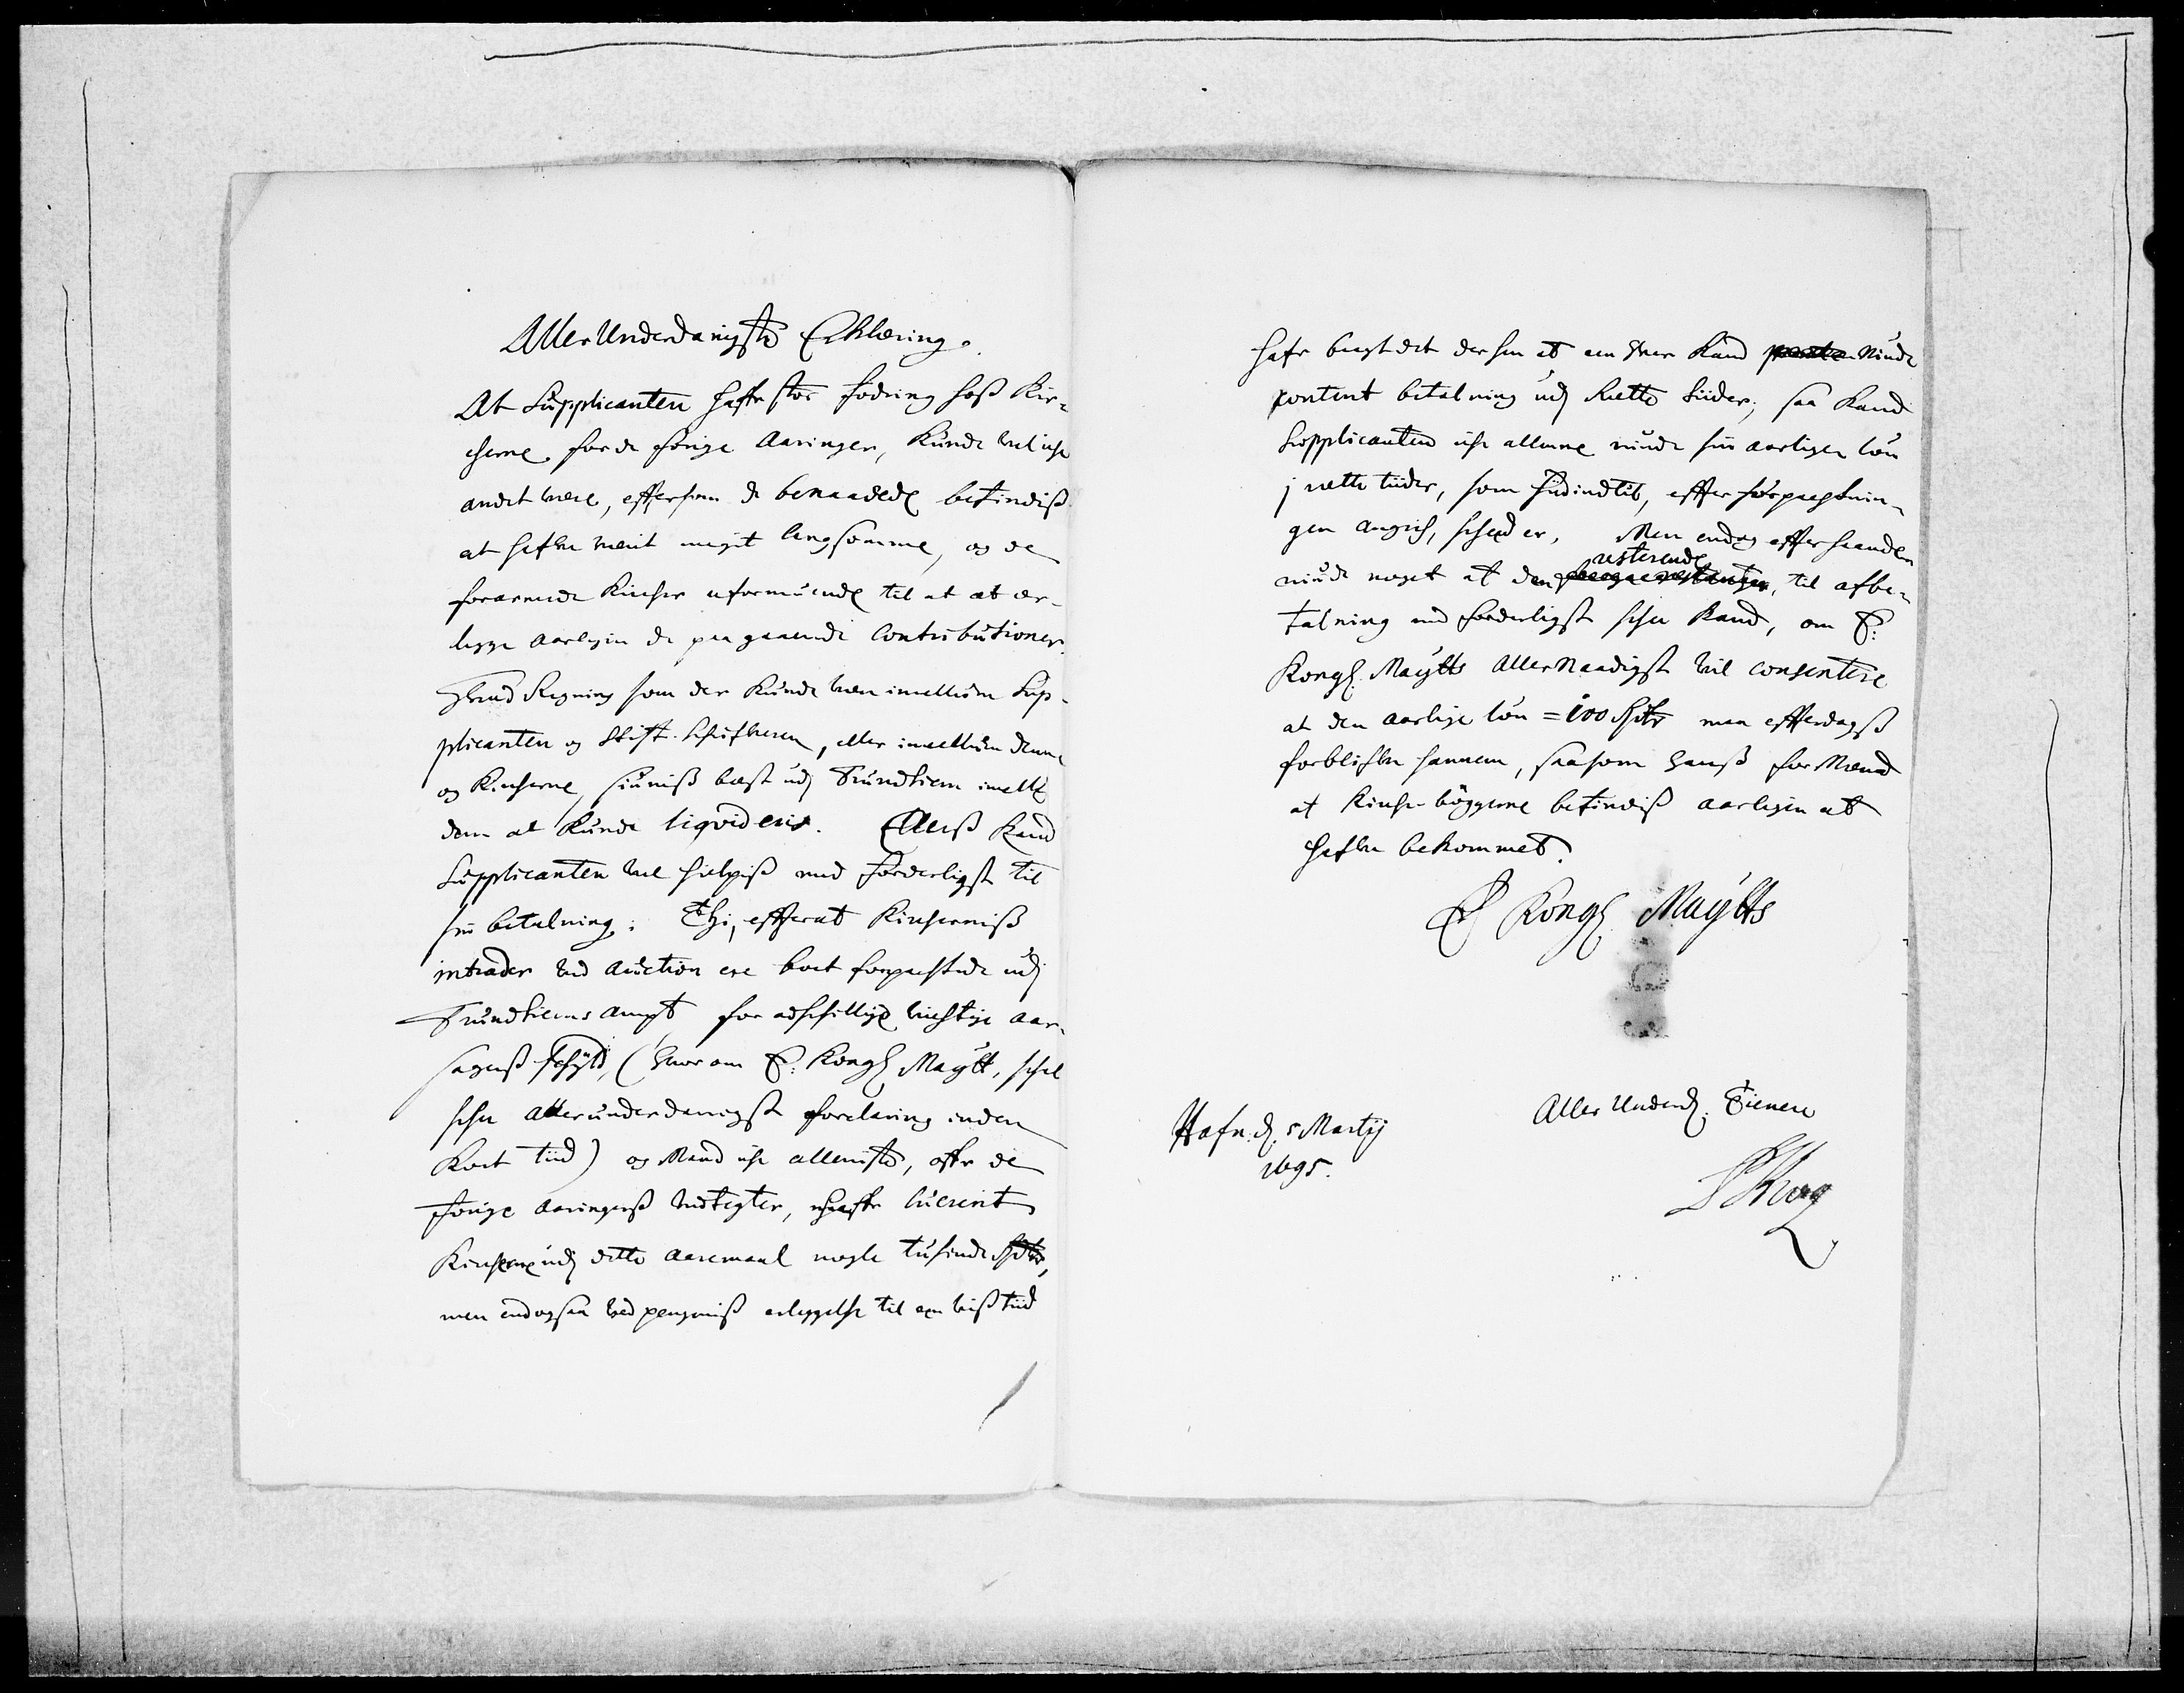 AllerUnderdanigste Erklering.
At Supplicanten hafr stor fodring hoß Kir-
cherne for de forige Aaringer, kunde vel iche
andet være, efftersom de benaadede befindiß
at hafve været meget langsomme, og de
forarmede Kircher uformuende til at at er-
legge aarligen de paa gaaende Contributioner.
Hvad Regning som der kunde være imellum Sup-
plicanten og Stift-Schrifveren, eller imellum denne
og Kircherne, siuniß best udj Trundhiem imellē
dem at kunde liqvideris. Elleß kand
Supplicanten vel hielpiß med forderligst til
sin betalning; Thi, effterat Kircherniß
intrader ved auction ere bort forpachtede udj
Trundhiems ampt for adschillige vichtige aar-
sagers schyld, (hvor om E: Kongl Maytt, schal
schee allerunderdanigst forclaring inden
kort tiid) og Mand iche alleniste, offr de
forige aaringerß indtegter, hafr lucrerit
Kircherne udj dette aaremaal nogle tusinde Rdlr,
men endogsaa ved pengeniß erleggelse til een viß tiid
hafr bragt det der hen at een hver kand niude
content betalning udj Rette tiider, saa kand
Supplicanten iche allene niude sin aarligen løn
j rette tiider, som hid indtil, effter forpachtnin-
gen angich, scheed er, Men endog effterhaanden
niude noget at den resterende, til afbe-
talning med forderligst schee kand, om E:
Kongl. Maytts AllerNaadigst vil consentere
at den aarlige løn = 100 Rdlr maa effterdags
forblifve hannem, saasom hanß forMænd
at Kirche-bøggerne befindiß aarligen at
hafve bekommet.
E Kongl Maytts
Hafn. d. 5 Martij
1695.
Aller Underd. Tienere